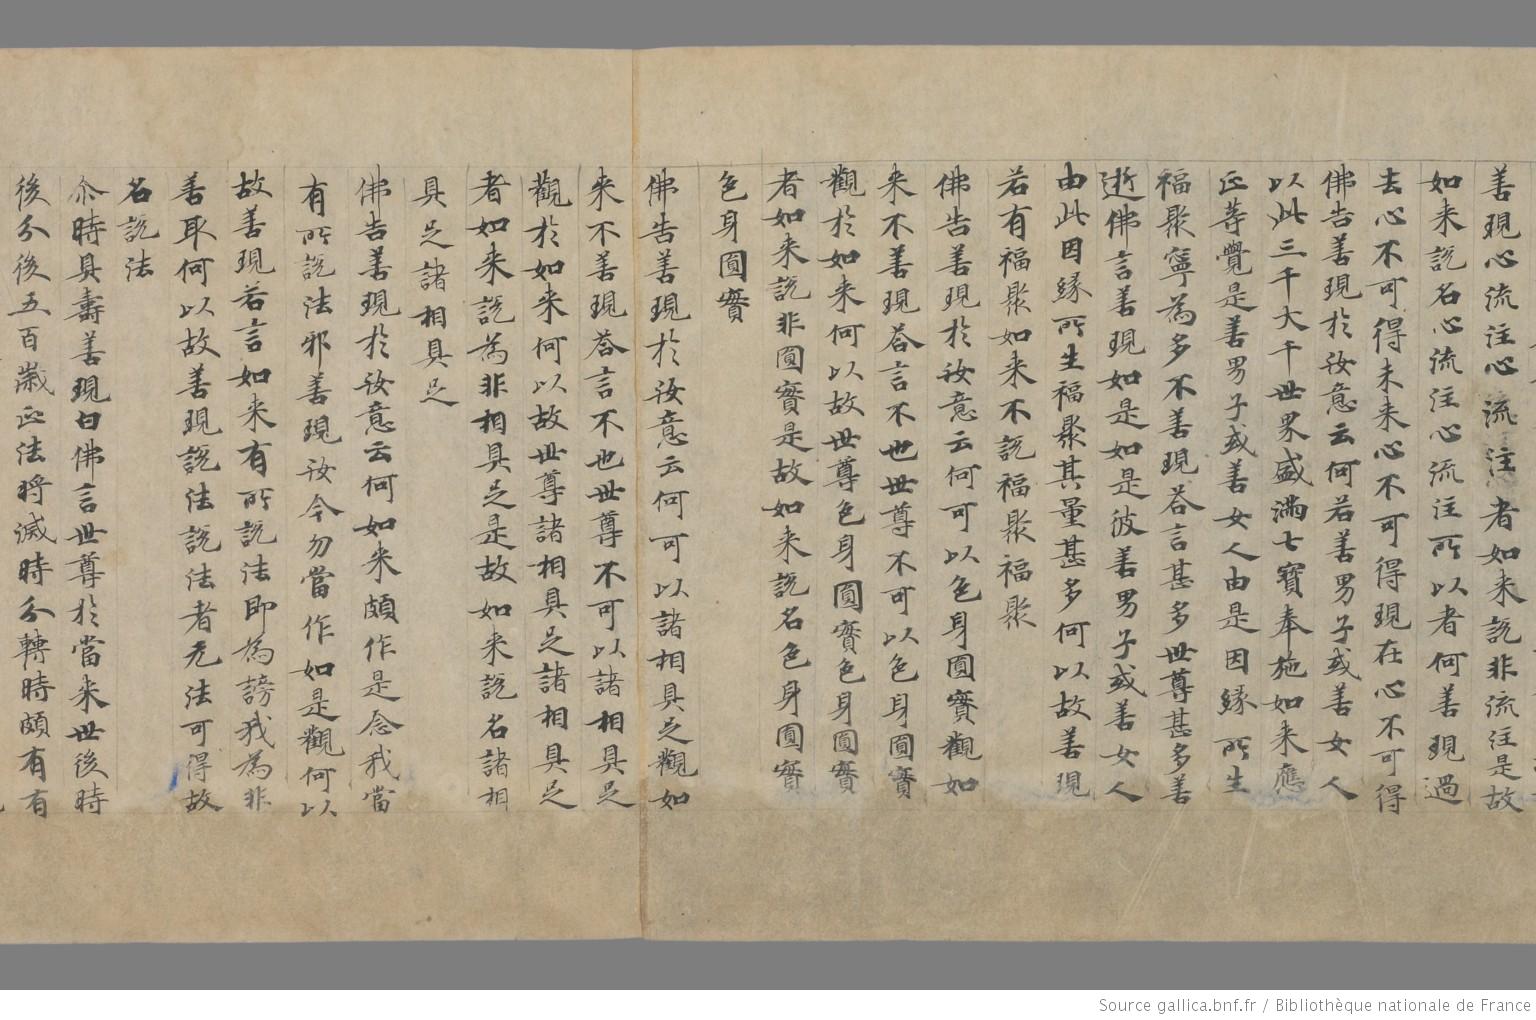 善現心流注心流注者如来說非流注是故
如来說名心流注心流注所以者何善現過
去心不可得未来心不可得現在心不可得
佛告善現於汝意云何若善男子或善女人
以此三千大千世界盛滿七寶奉施如来應
正等覺是善男子或善女人由是因緣所生
福聚寧為多不善現荅言甚多世尊甚多善
逝佛言善現如是如是彼善男子或善女人
由此因緣所生福聚其量甚多何以故善現
若有福聚如来不說福聚福聚
佛告善現於汝意云何可以色身圓實觀如
来不善現荅言不也世尊不可以色身圓實
觀於如来何以故世尊色身圓實色身圓實
者如来說非圓實是故如来說名色身圓實
色身圓實
佛告善現於汝意云何可以諸相具足觀如
来不善現荅言不也世尊不可以諸相具足
觀於如来何以故世尊諸相具足諸相具足
者如来說為非相具足是故如来說名諸相
具足諸相具足
佛告善現於汝意云何如来頗作是念我當
有所說法邪善現汝今勿當作如是觀何以
故善現若言如来有所說法即為謗我為非
善取何以故善現說法說法者无法可得故
名說法
尒時具壽善現白佛言世尊於當来世後時
後分後五百歲正法將滅時分轉時頗有有
Source gallica.bnf.fr / Bibliothèque nationale de France